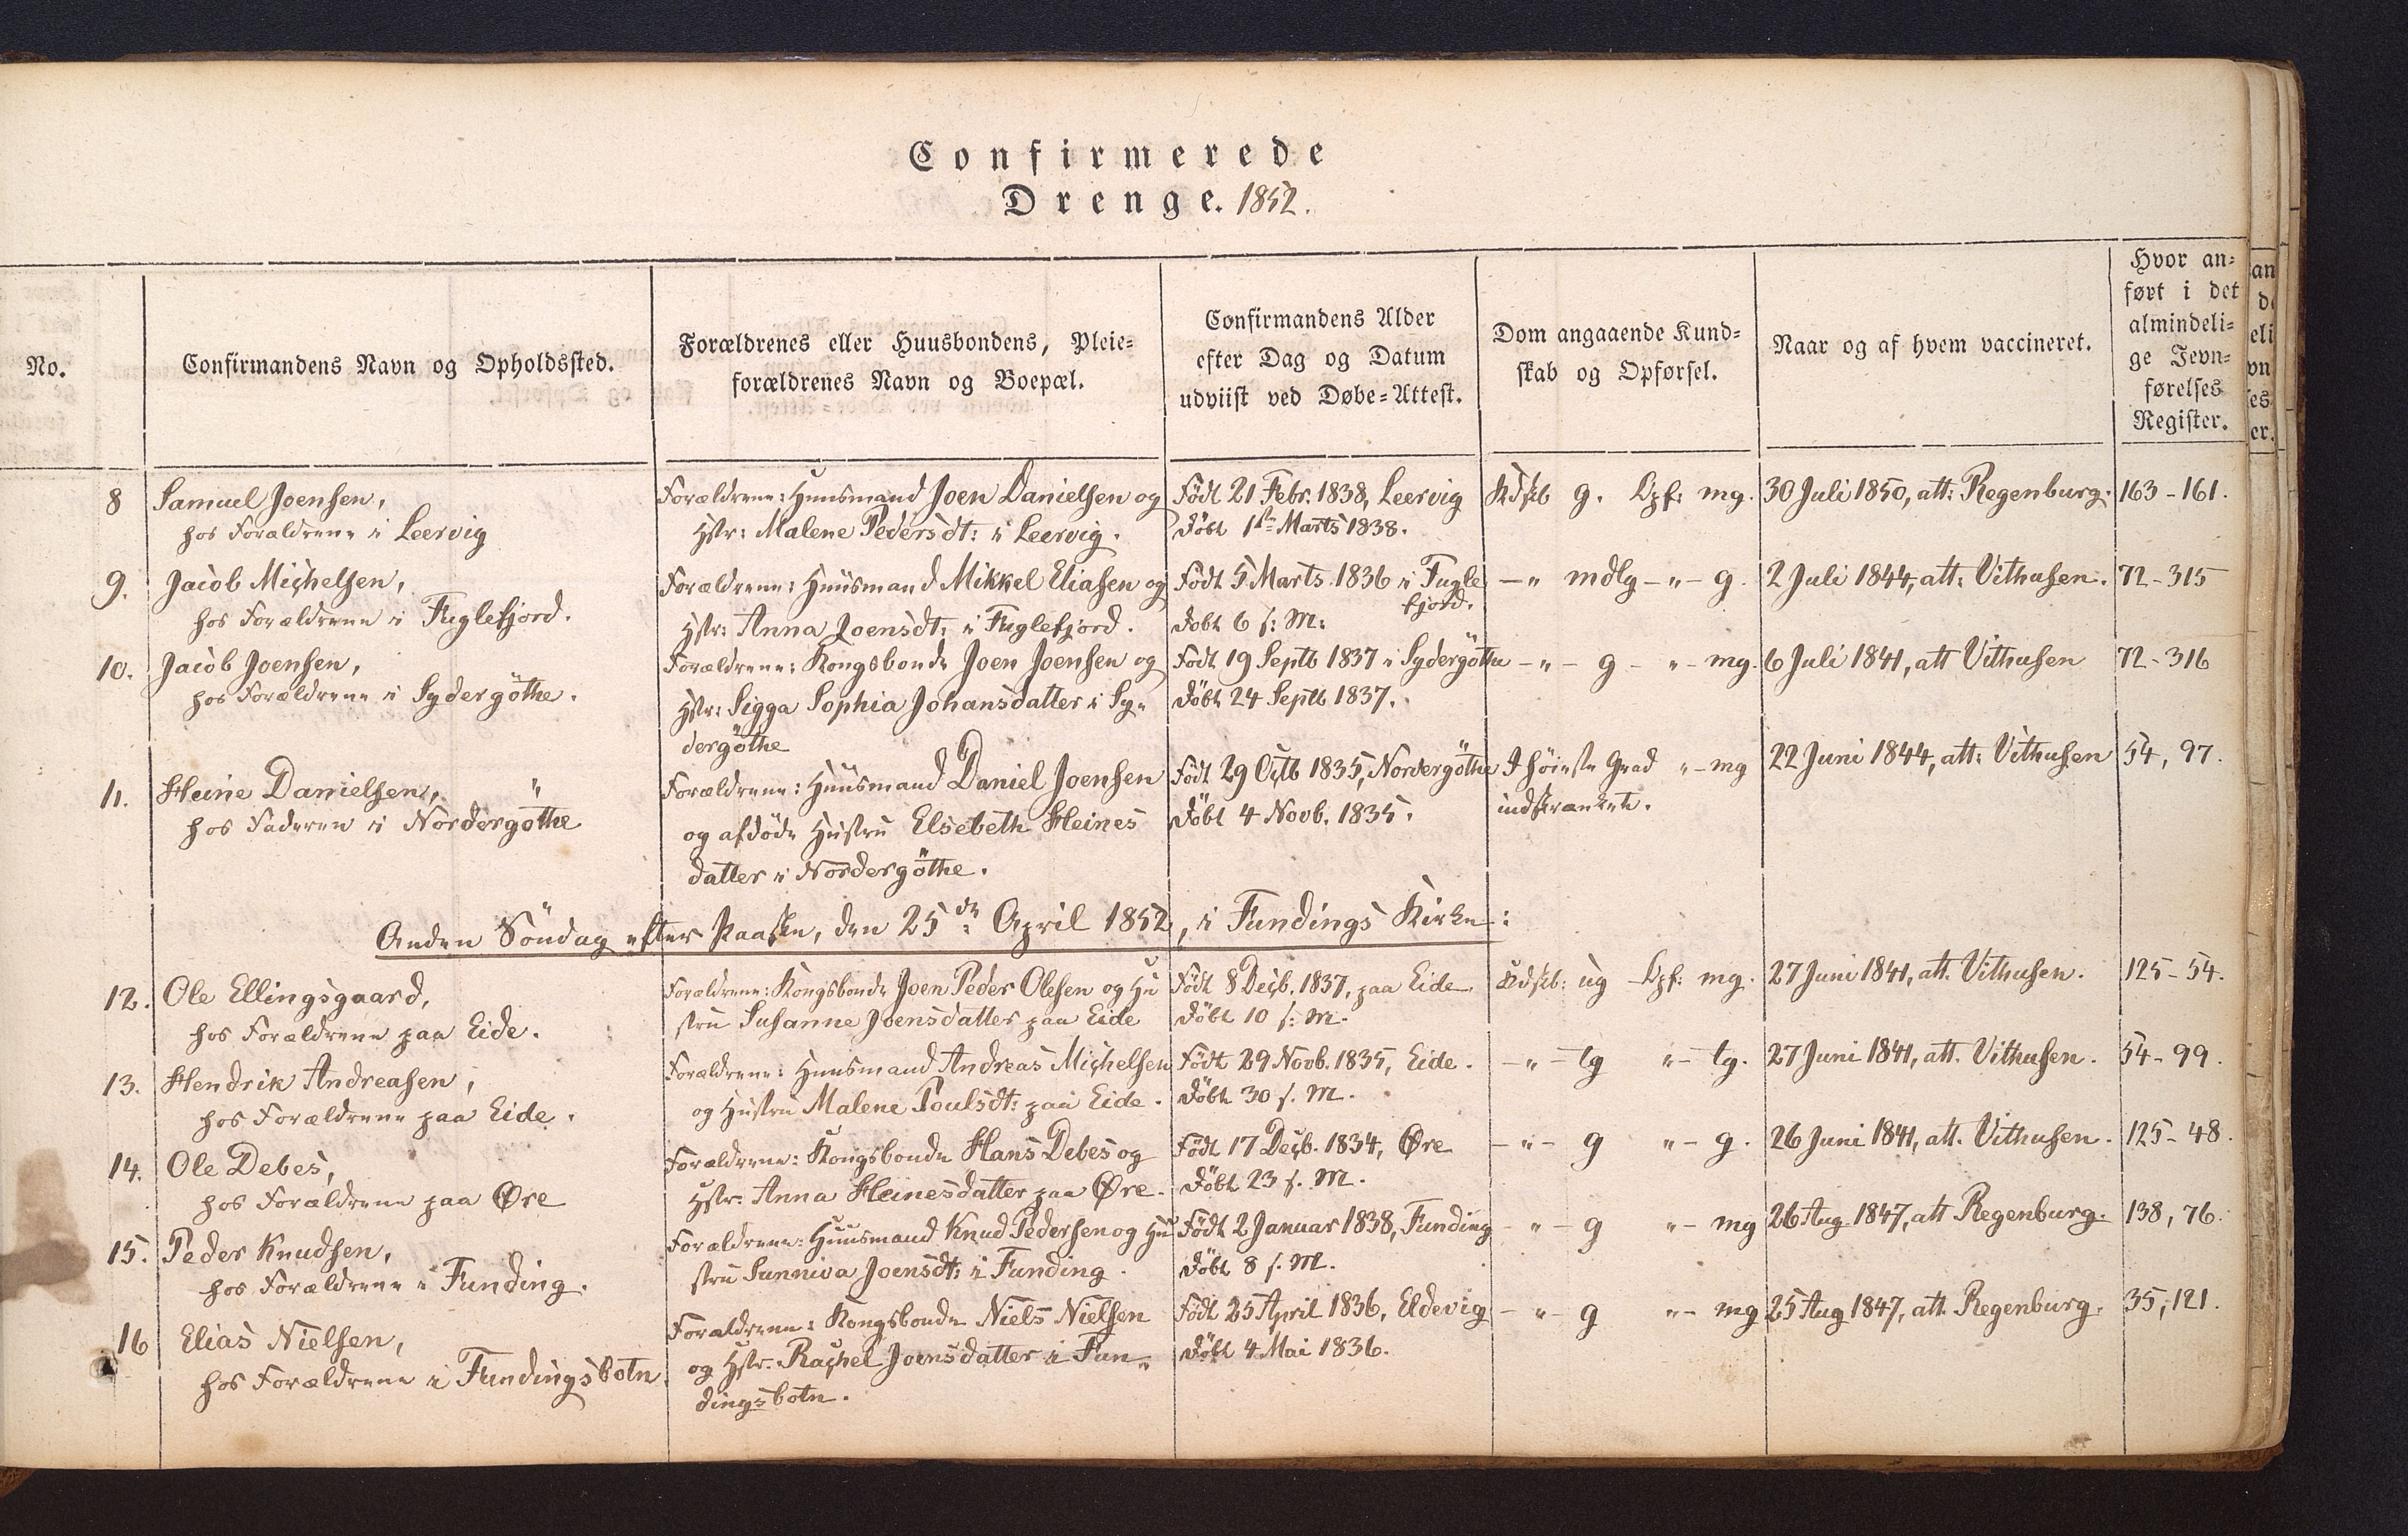 Confirmerede
Drenge. 1852.
No.
Confirmandens Navn og Opholdssted.
Forældrenes eller Huusbondens, Pleie-
forældrenes Navn og Boepæl.
Confirmandens Alder
efter Dag og Datum
udviist ved Døbe-Attest.
Dom angaaende Kund-
skab og Opførsel.
Naar og af hvem vaccineret.
Hvor an-
ført i det
almindeli-
ge Jevn-
førelses
Register.
8
Samuel Joensen,
hos Forældrene i Leervig
Forældrene: Huusmand Joen Danielsen og
Hstr: Malene Pedersdt: i Leervig.
Født 21 Febr. 1838, Leervig
Døbt 1ste Marts 1838.
Kdskb g. Opf: mg.
30 Juli 1850, att: Regenburg.
163-161.
9.
Jacob Michelsen,
hos Forældrene i Fuglefjord.
Forældrene: Huusmand Mikkel Eliasen og
Hstr: Anna Joensdt: i Fuglefjord.
Født 5 Marts 1836 i Fugle
fjord.
Døbt 6 s: M:
-"- mdlg -"- g.
2 Juli 1844, att: Vithusen.
72-315
10.
Jacob Joensen,
hos Forældrene i Sydergöthe.
Forældrene: Kongsbonde Joen Joensen og
Hstr: Sigga Sophia Johansdatter i Sy-
dergöthe
Født 19 Septb 1837 i Sydergöthe
Døbt 24 Septb 1837.
-"- g -"- mg.
6 Juli 1841, att Vithusen
72-316
11.
Heine Danielsen,
hos Faderen i Nordergöthe
Forældrene: Huusmand Daniel Joensen
og afdöde Hustru Elsebeth Heines
datter i Nordergöthe.
Født 29 Octb 1835, Nordergöthe
Döbt 4 Novb. 1835.
I höieste Grad "- mg
indskrænket.
22 Juni 1844, att: Vithusen
54, 97.
Anden Söndag efter Paaske, den 25de April 1852, i Fundings Kirke:
12.
Ole Ellingsgaard,
hos Forældrene paa Eide.
Forældrene: Kongsbonde Joen Peder Olesen og Hu
stru Susanne Joensdatter paa Eide
Født 8 Decb. 1837, paa Eide
Döbt 10 s: M.
Kdskb: ug Opf: mg.
27 Juni 1841, att. Vithusen.
125-54.
13.
Hendrik Andreasen,
hos Forældrene paa Eide.
Forældrene: Huusmand Andreas Michelsen
og Hustru Malene Poulsdt: paa Eide.
Födt 29 Novb. 1835, Eide.
Döbt 30 s. M.
-"- tg "- tg.
27 Juni 1841, att. Vithusen.
54-99.
14.
Ole Debes,
hos Forældrene paa Øre
Forældrene: Kongsbonde Hans Debes og
Hstr: Anna Heinesdatter paa Øre.
Födt 17 Decb. 1834, Øre
Döbt 23 s. M.
-"- g "- g.
26 Juni 1841, att. Vithusen.
125-48.
15.
Peder Knudsen,
hos Forældrene i Funding.
Forældrene: Huusmand Knud Pedersen og Hu
stru Sunniva Joensdt: i Funding.
Födt 2 Januar 1838, Funding
Döbt 8 s. M.
-"- g "- mg
26 Aug 1847, att Regenburg.
138, 76.
16
Elias Nielsen,
hos Forældrene i Fundingsbotn.
Forældrene: Kongsbonde Niels Nielsen
og Hstr. Rachel Joensdatter i Fun-
dingsbotn.
Födt 25 April 1836, Eldevig
Döbt 4 Mai 1836.
-"- g "- mg
25 Aug 1847, att. Regenburg.
35, 121.